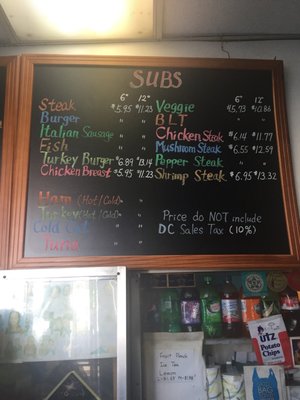 SUBS
6" 12"
Steak $5.95 $11.23
Burger " "
Italian Sausage " "
Fish " "
Turkey Burger $6.89 $13.14
Chicken Breast $5.95 $11.23
Ham (Hot/Cold) " "
Turkey (Hot/Cold) " "
Cold Cut " "
Tuna " "
6" 12"
Veggie $5.73 $10.86
B L T " "
Chicken Steak $6.14 $11.77
Mushroom Steak $6.55 $12.59
Pepper Steak " "
Shrimp Steak $6.95 $13.32
Price do NOT include
DC Sales Tax (10%)
UTZ
Potato
Chips
Fruit Punch
Ice Tea
Lemon
BAG